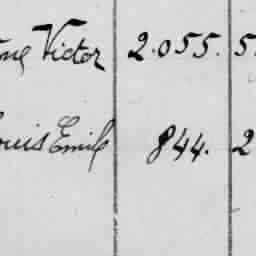 Victor 2.055. 5
Louis Emile 844. 2